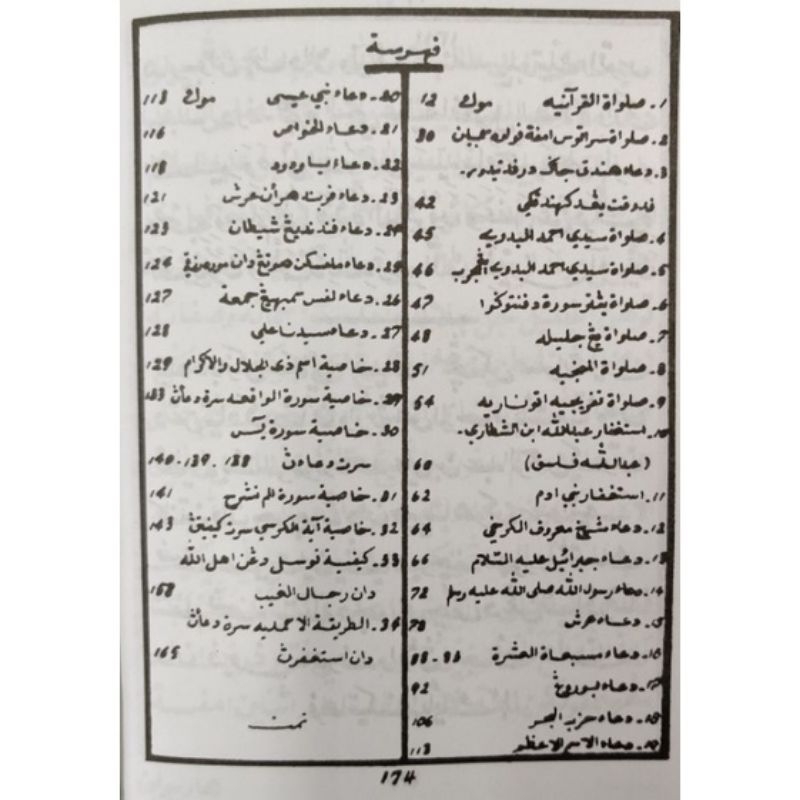 فهرسة
1. صلواة القرآنيه موك 12
2. صلواة سراتوس امفة فوله سمبيلن 30
3. دعاء هندق جاݢ در فد تيدور.
فدوقت بڠد كهندقكي 42
4. صلواة سيدي احمد البدوي 45
5. صلواة سيدي احمد البدوي المجرب 46
6. صلواة 47
7. صلواة يڠ جليله 48
8. صلواة المنجيه 51
9. صلواة تفريجيه اتوناريه 54
10. استغفار عبدالله ابن الشطاري.
(عبدالله فاسق) 60
11. استغفار نبي ادم 62
12. دعاء شيخ معروف الكرخي 64
13. دعاء جبرائيل عليه السّلام 66
14. دعاء رسول الله صلى الله عليه وسلم 72
15. دعاء عرش 78
16. دعاء مسبعاة العشرة 86 - 88
17. دعاء بوروڠ 92
18. دعاء حزب البحر 106
19. دعاء الاسم الاعظم 113
20. دعاء نبي عيسى موك 113
21. دعاء الخواص 116
22. دعاء نبي داود 118
23. دعاء فربندهرأن عرش 121
24. دعاء فندنديڠ شيطان 123
25. دعاء ملفسكن هوتڠ دان 124
26. دعاء لفس سمبهيڠ جمعة 127
27. دعاء سيدنا علي 128
28. خاصية اسم ذى الجلال والاكرام 129
29. خاصية سورة الواقعه سرة دعاءڽ 133
30. خاصية سورة يٓس
سرت دعاءڽ 138 . 139 . 140
31. خاصية سورة الم نشرح 141
32. خاصية آية الكرسي سرت كيفيتڽ 143
33. كيفية توسل دڠن اهل الله
دان رجال الغيب 158
34. الطريقة الاحمديه سرة دعاءڽ
دان استغفرڽ 165
تمت
174